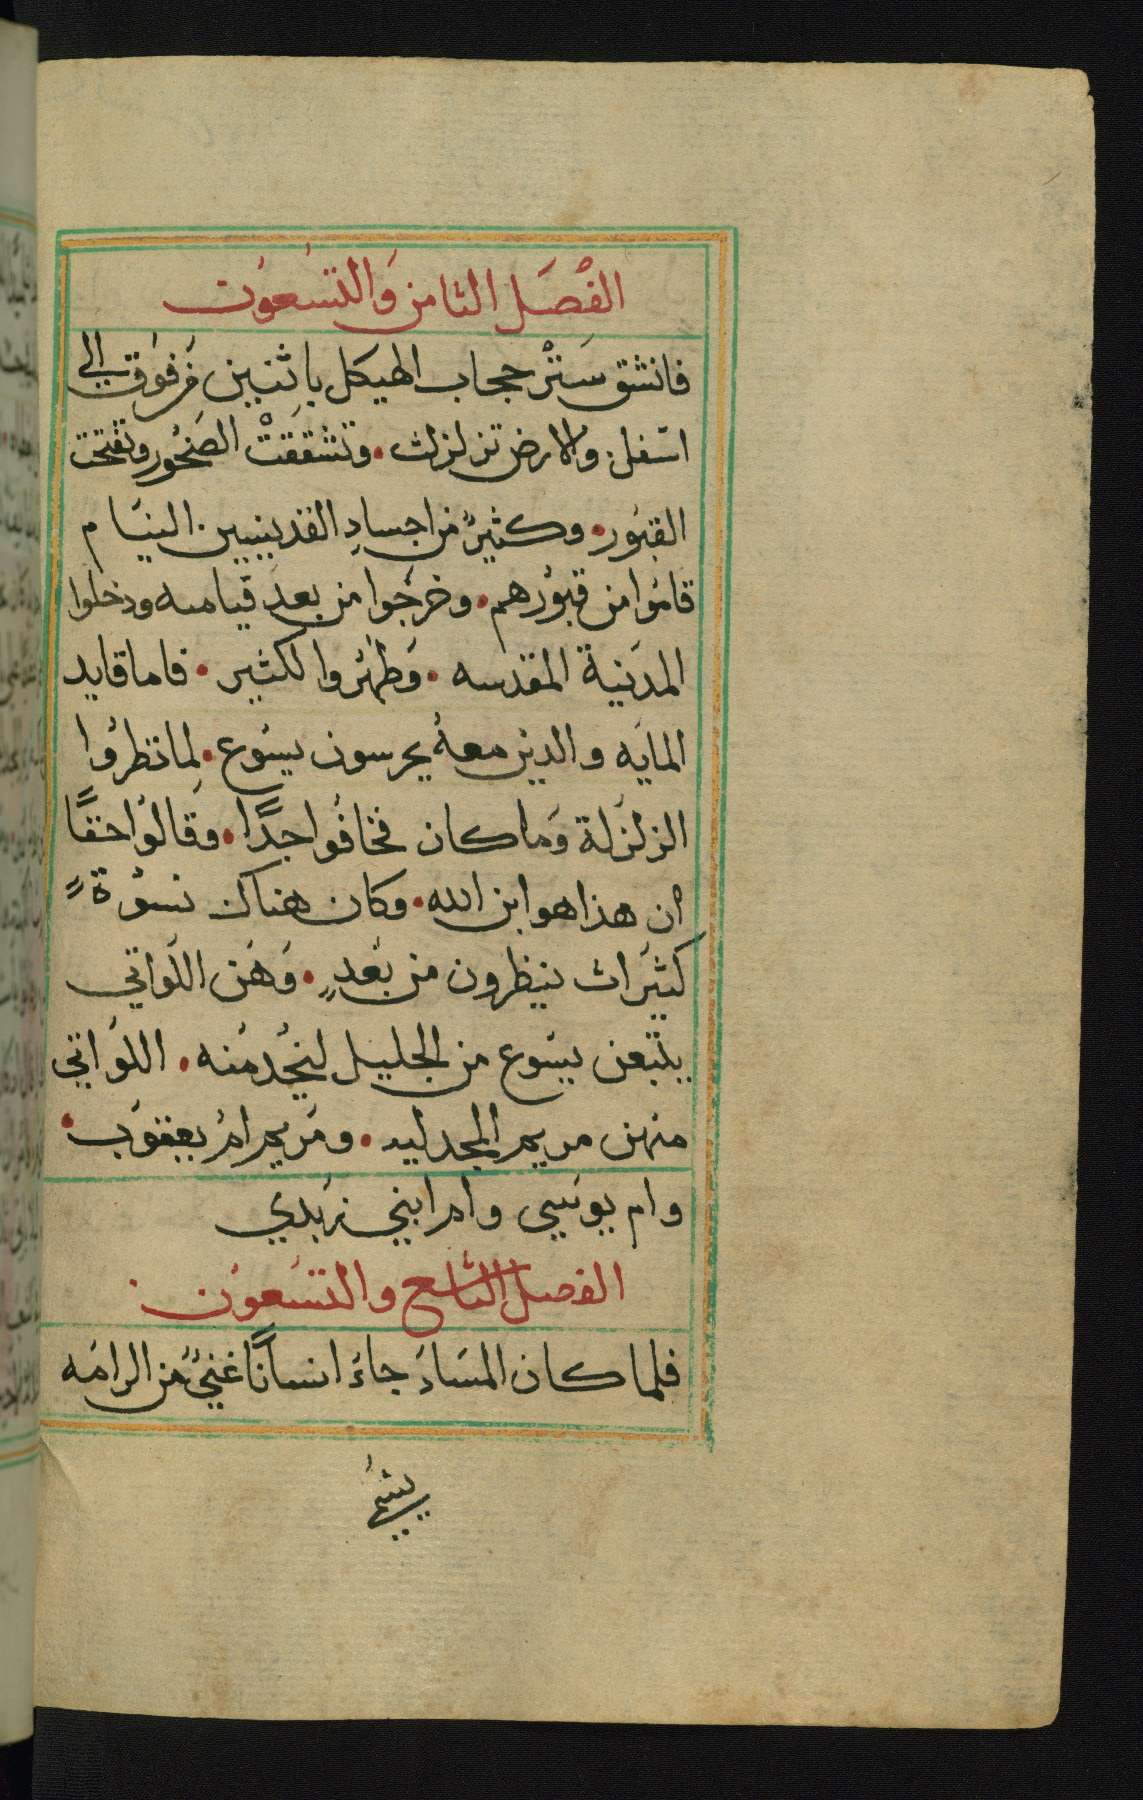 الفصل الثامن والتسعون
فانشق ستر حجاب الهيكل باثنين من فوق الى
اسفل. والارض تزلزلت • وتشققت الصخور وتفتحت
القبور • وكثيرٌ من اجسادِ القديسيين النيام
قاموا من قبورهم • وخرجوا من بعد قيامته ودخلوا
المدينة المقدسه • وظهروا لكثير • فاما قايد
المايه والدين معهُ يحرسون يسوع • لما نظروا
الزلزلة وما كان فخافوا جدًا • وقالوا حقًا
أن هذا هو ابن الله • وكان هناك نسوةً
كثيرات ينظرون من بُعدٍ • وهن اللواتي
يتبعن يسوع من الجليل ليخدمنه • اللواتي
منهن مريم المجدليه • ومريم ام يعقوب •
وام يوسي وام ابني زبدي
الفصل التاسع والتسعون
فلما كان المساءَ جاءَ انسانًا غنيٌ من الرامه